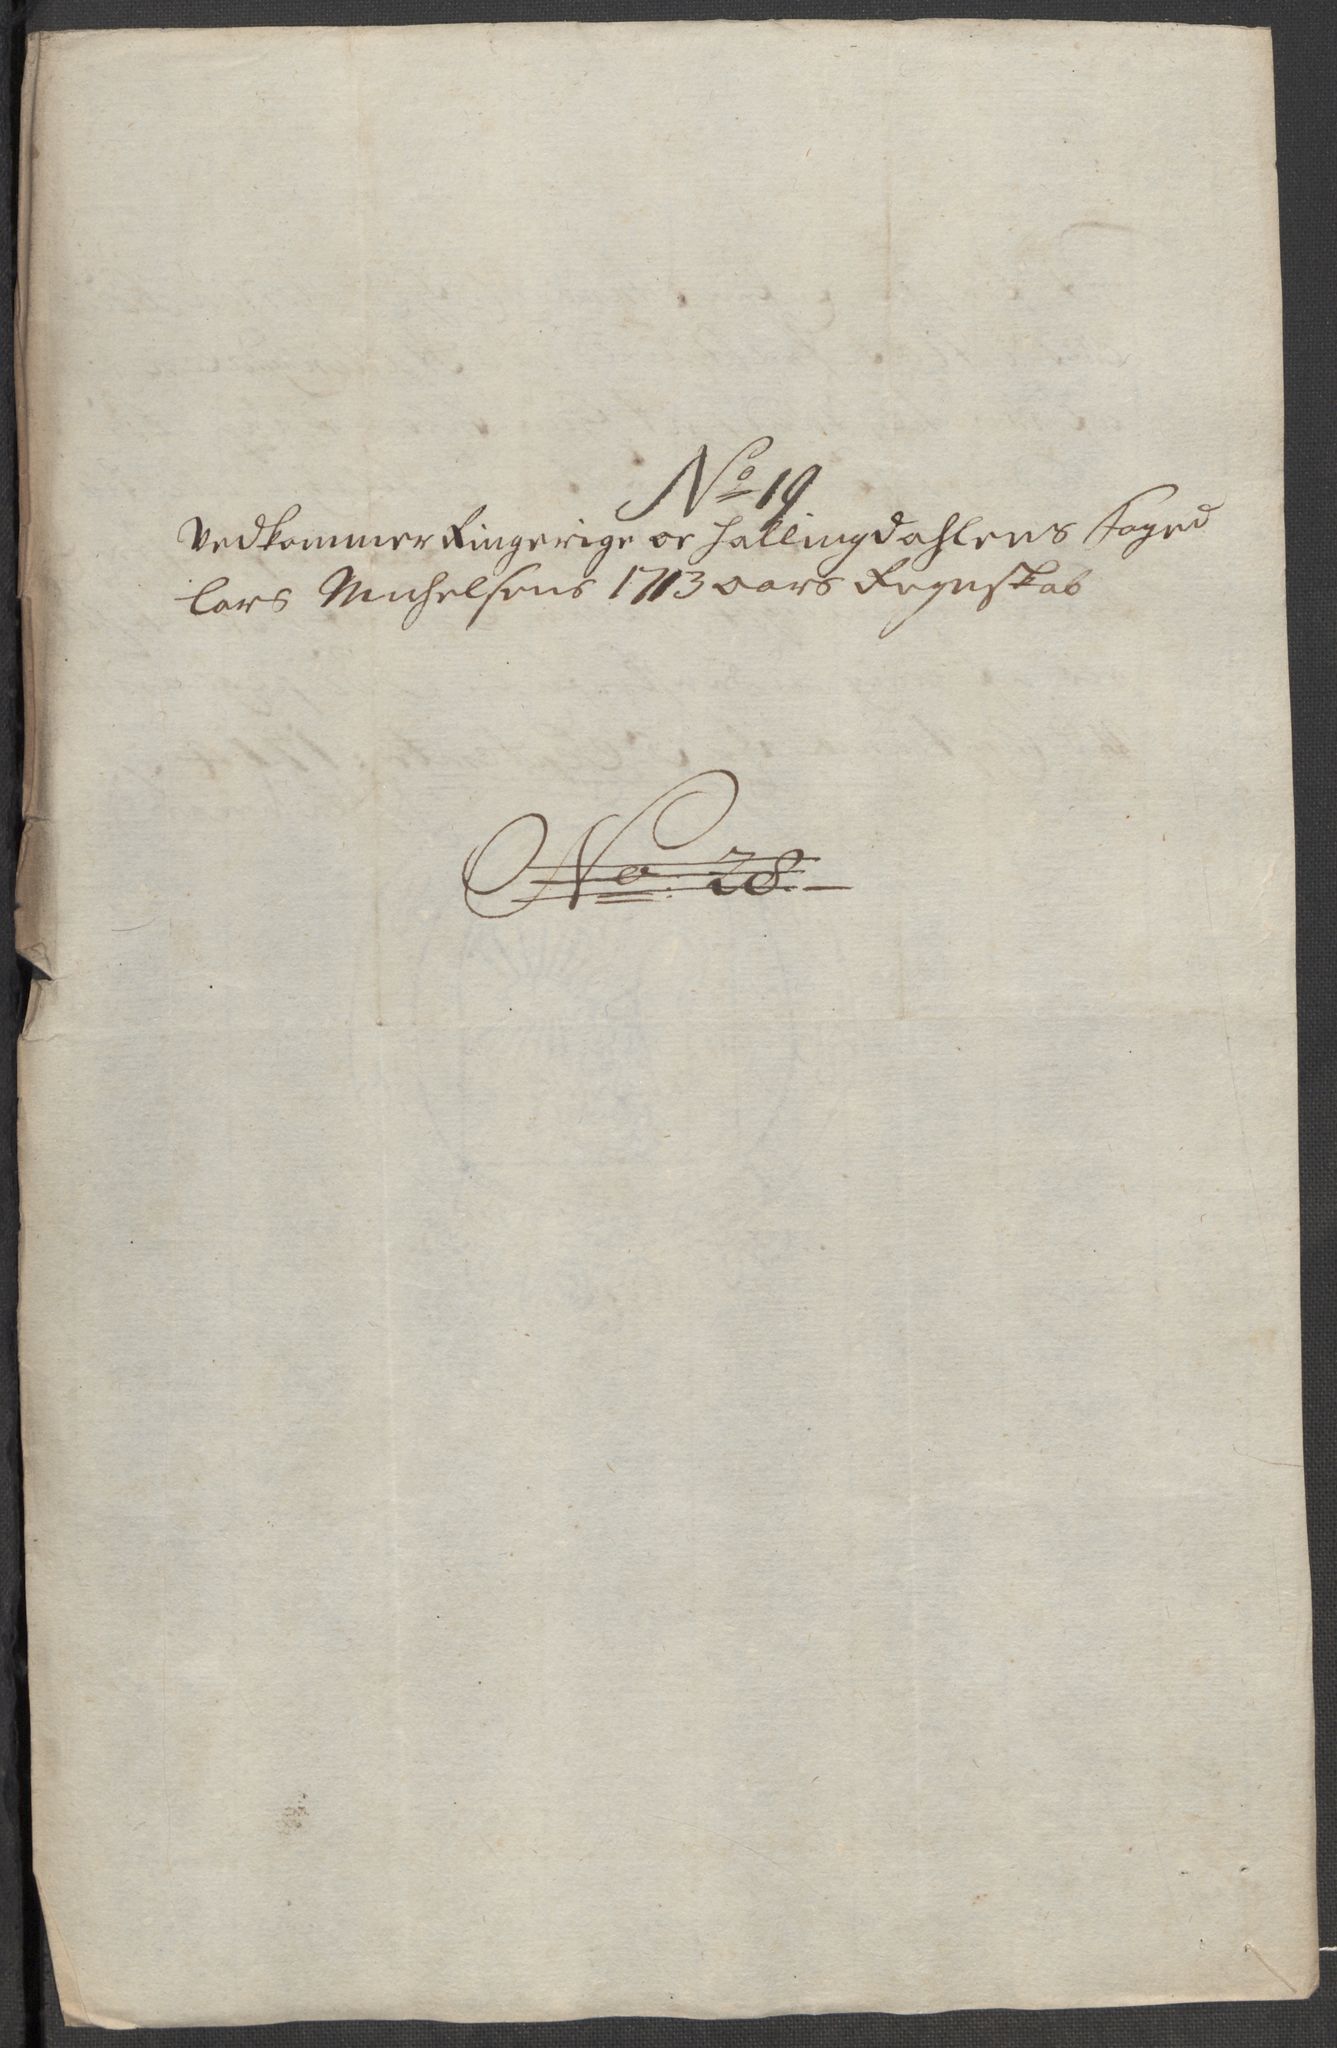 No 19
Vedkommer Ringerige oc Hallingdahlens Foged
Lars Michelsens 1713 aars Regnskab
No. 28.